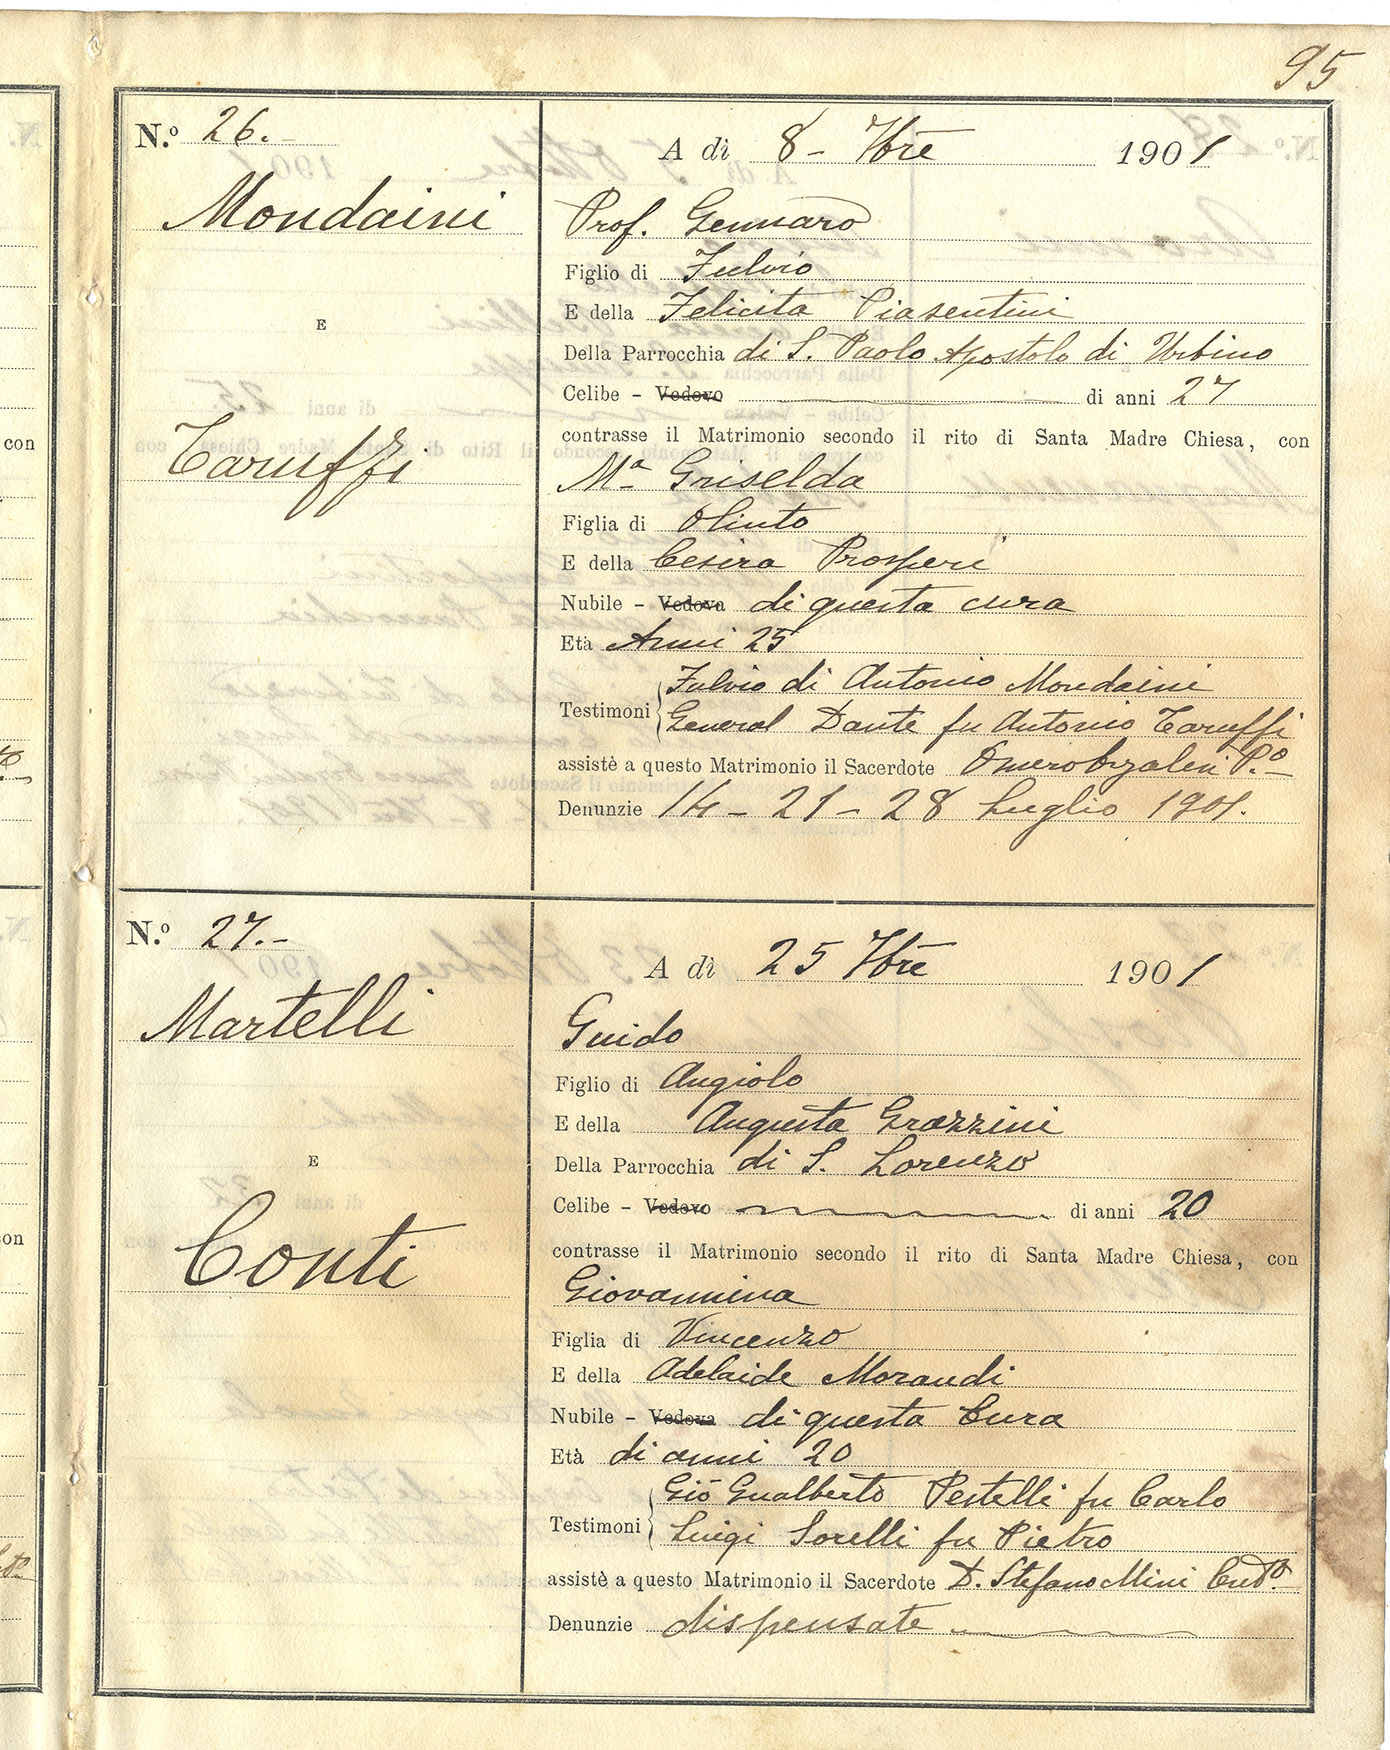 95
N.º 26.
Mondaini
E
Taruffi
A dì 8 - 7bre 1901
Prof. Gennaro
Figlio di Fulvio
E della Felicita Piasentini
Della Parrocchia di S. Paolo Apostolo di Urbino
Celibe - Vedovo di anni 27
contrasse il Matrimonio secondo il rito di Santa Madre Chiesa, con
Mª Griselda
Figlia di Olinto
E della Cesira Prosperi
Nubile - Vedova di questa cura
Età Anni 25
Testimoni Fulvio di Antonio Mondaini
General Dante fu Antonio Taruffi
assistè a questo Matrimonio il Sacerdote
Denunzie 14 - 21 - 28 Luglio 1901.
N.º 27.-
Martelli
E
Conti
A dì 25 7bre 1901
Guido
Figlio di Angiolo
E della Augusta Grazzini
Della Parrocchia di S. Lorenzo
Celibe - Vedovo di anni 20
contrasse il Matrimonio secondo il rito di Santa Madre Chiesa, con
Giovannina
Figlia di Vincenzo
E della Adelaide Morandi
Nubile - Vedova di questa Cura
Età di anni 20
Testimoni Gio Gualberto Pestelli fu Carlo
Luigi Sorelli fu Pietro
assistè a questo Matrimonio il Sacerdote D. Stefano Mini
Denunzie dispensate
con
con